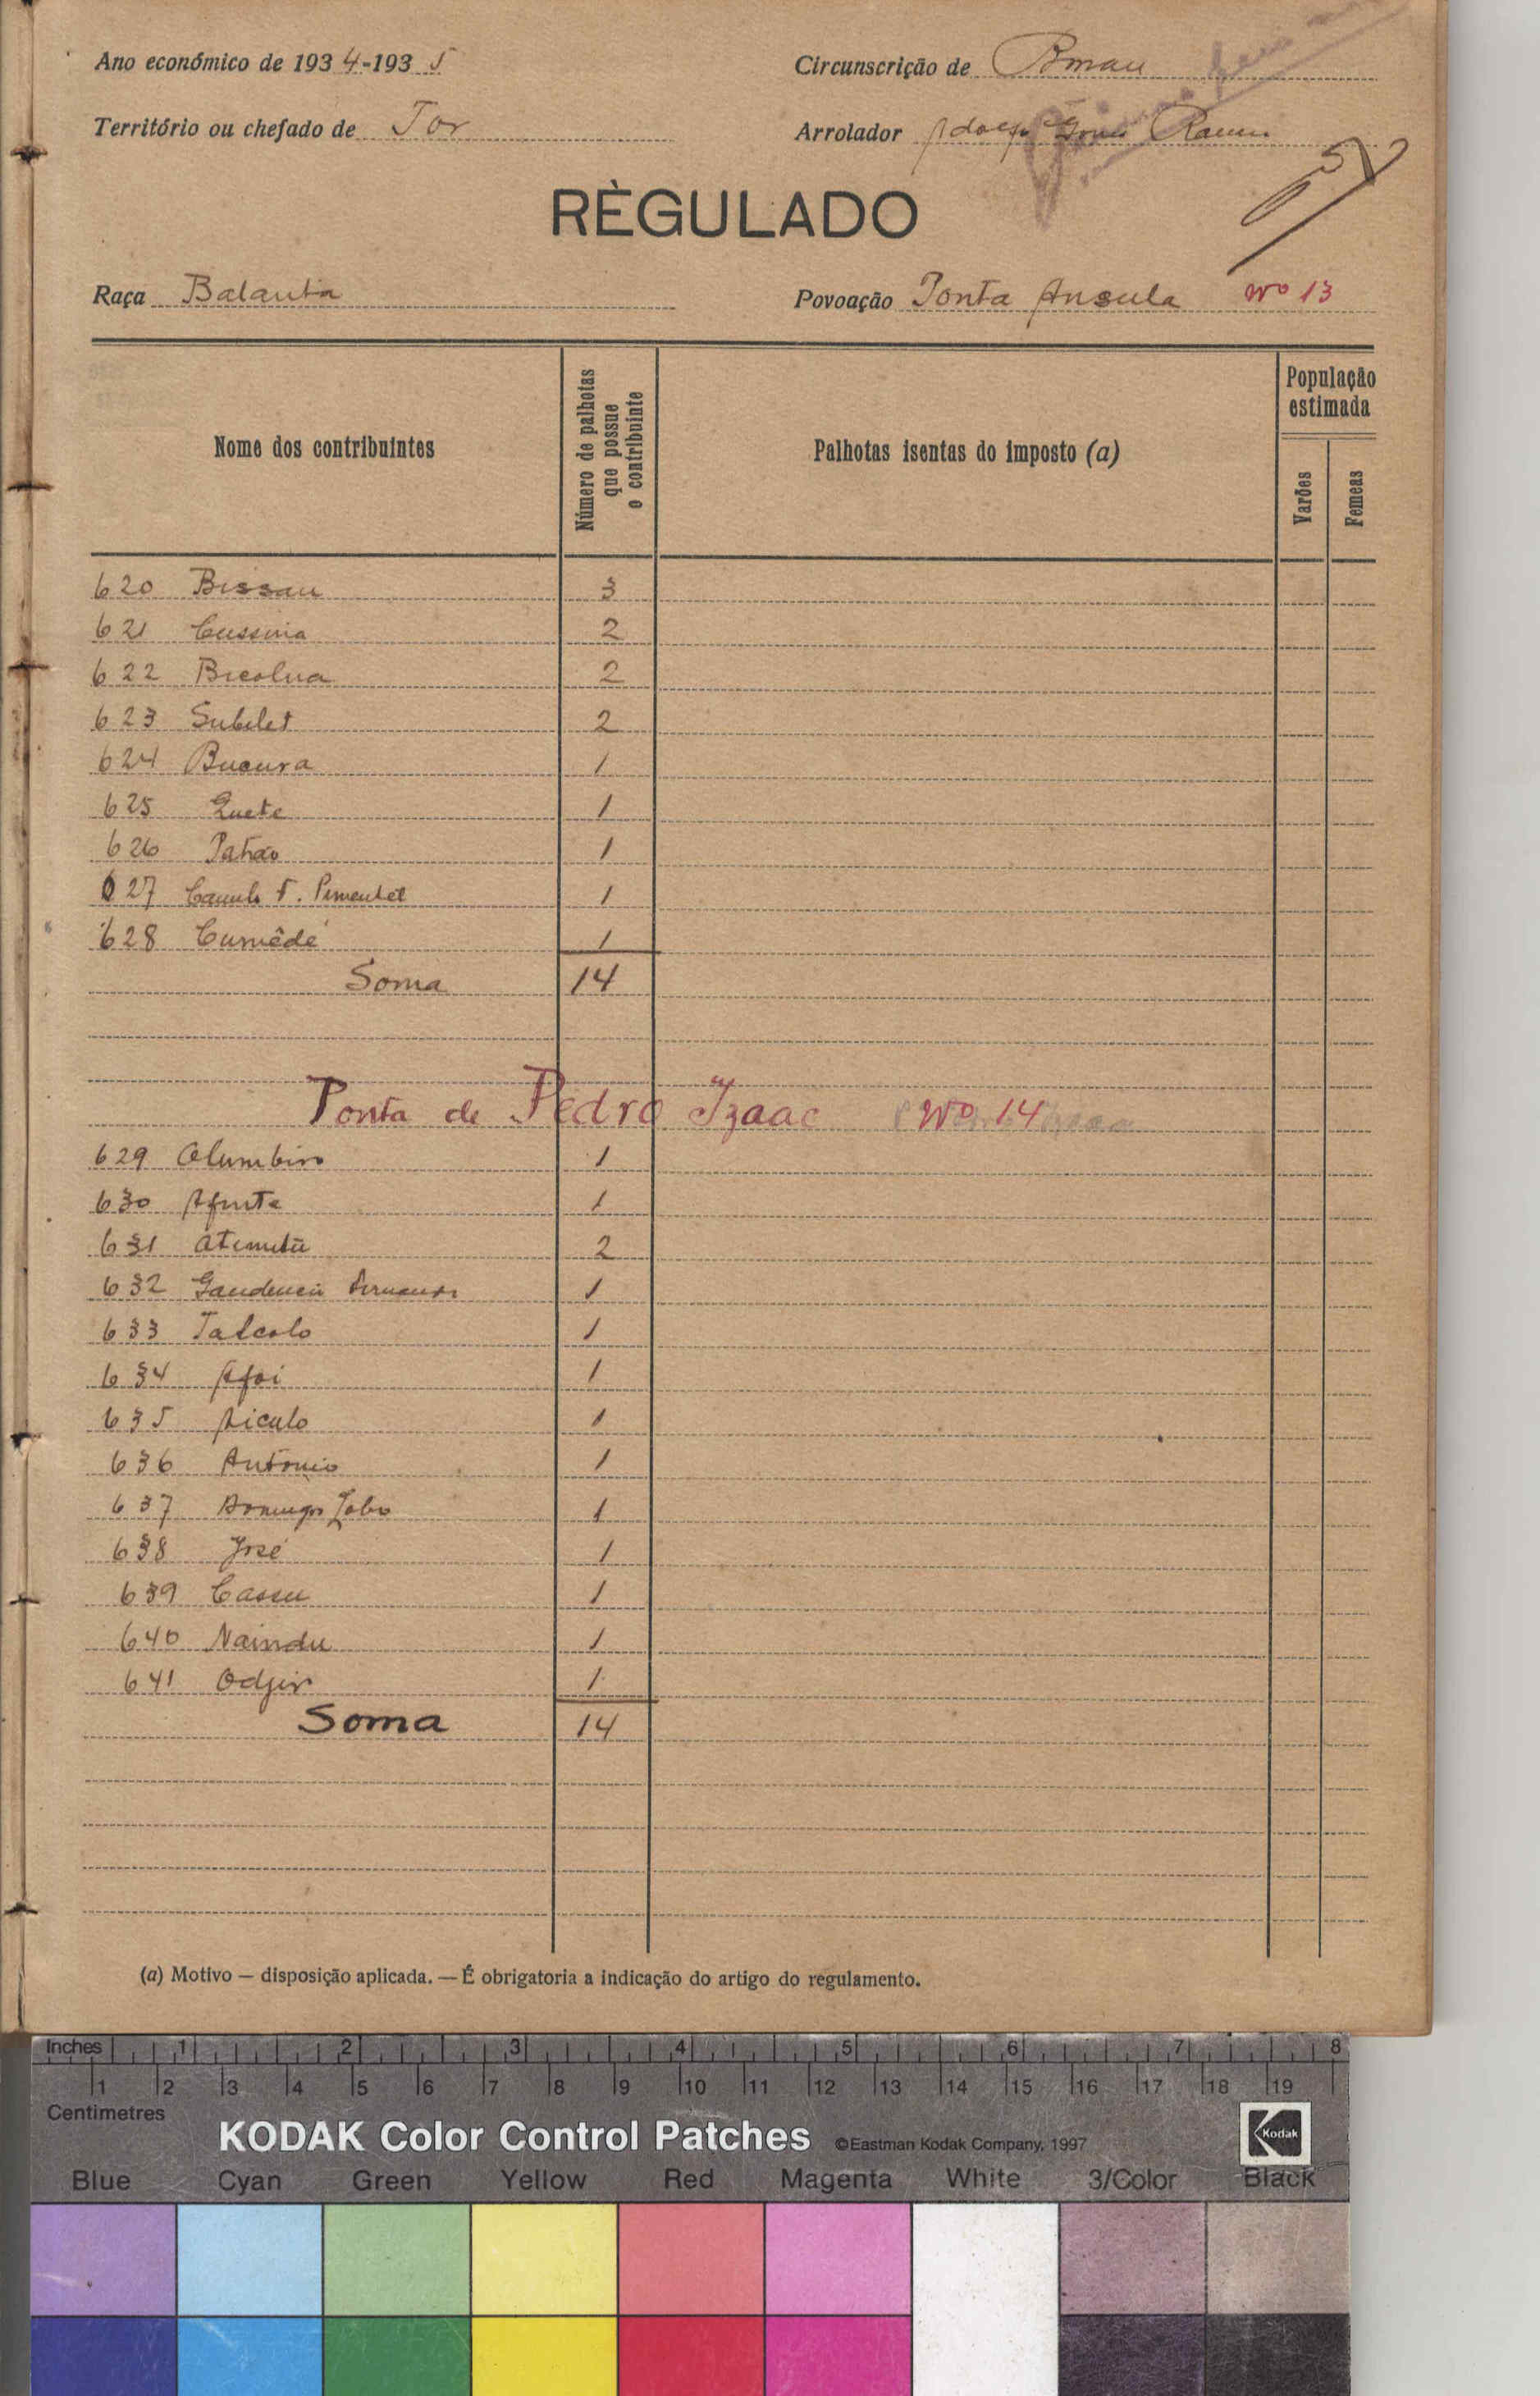 Ano económico de 1934-1935
Circunscrição de Bmau
Território ou chefado de Tor
Arrolador Adolfo Gomes Ramos
RÈGULADO
Raça Balanta
Povoação Ponta Ansula Nº 13
Nome dos contribuintes
Número de palhotas que possue o contribuinte
Palhotas isentas do imposto (a)
População estimada
Varões
Femeas
620 Bissau 3
621 Cussina 2
622 Bicolna 2
623 Subilet 2
624 Bucura 1
625 Quete 1
626 Patrão 1
627 Camilo F. Pimentel 1
628 Cumêdé 1
Soma 14
Ponta de Pedro Izaac Nº 14
629 Olumbino 1
630 Afunta 1
631 2
632 Gaudencio Fernandes 1
633 Tatcolo 1
634 Afoi 1
635 Aiculo 1
636 António 1
637 Domingos Lobo 1
638 José 1
639 Cassu 1
640 Naindu 1
641 Odjir 1
Soma 14
(a) Motivo — disposição aplicada. — É obrigatoria a indicação do artigo do regulamento.
Inches 1 2 3 4 5 6 7 8
1 2 3 4 5 6 7 8 9 10 11 12 13 14 15 16 17 18 19
Centimetres
KODAK Color Control Patches ©Eastman Kodak Company, 1997 Kodak
Blue Cyan Green Yellow Red Magenta White 3/Color Black